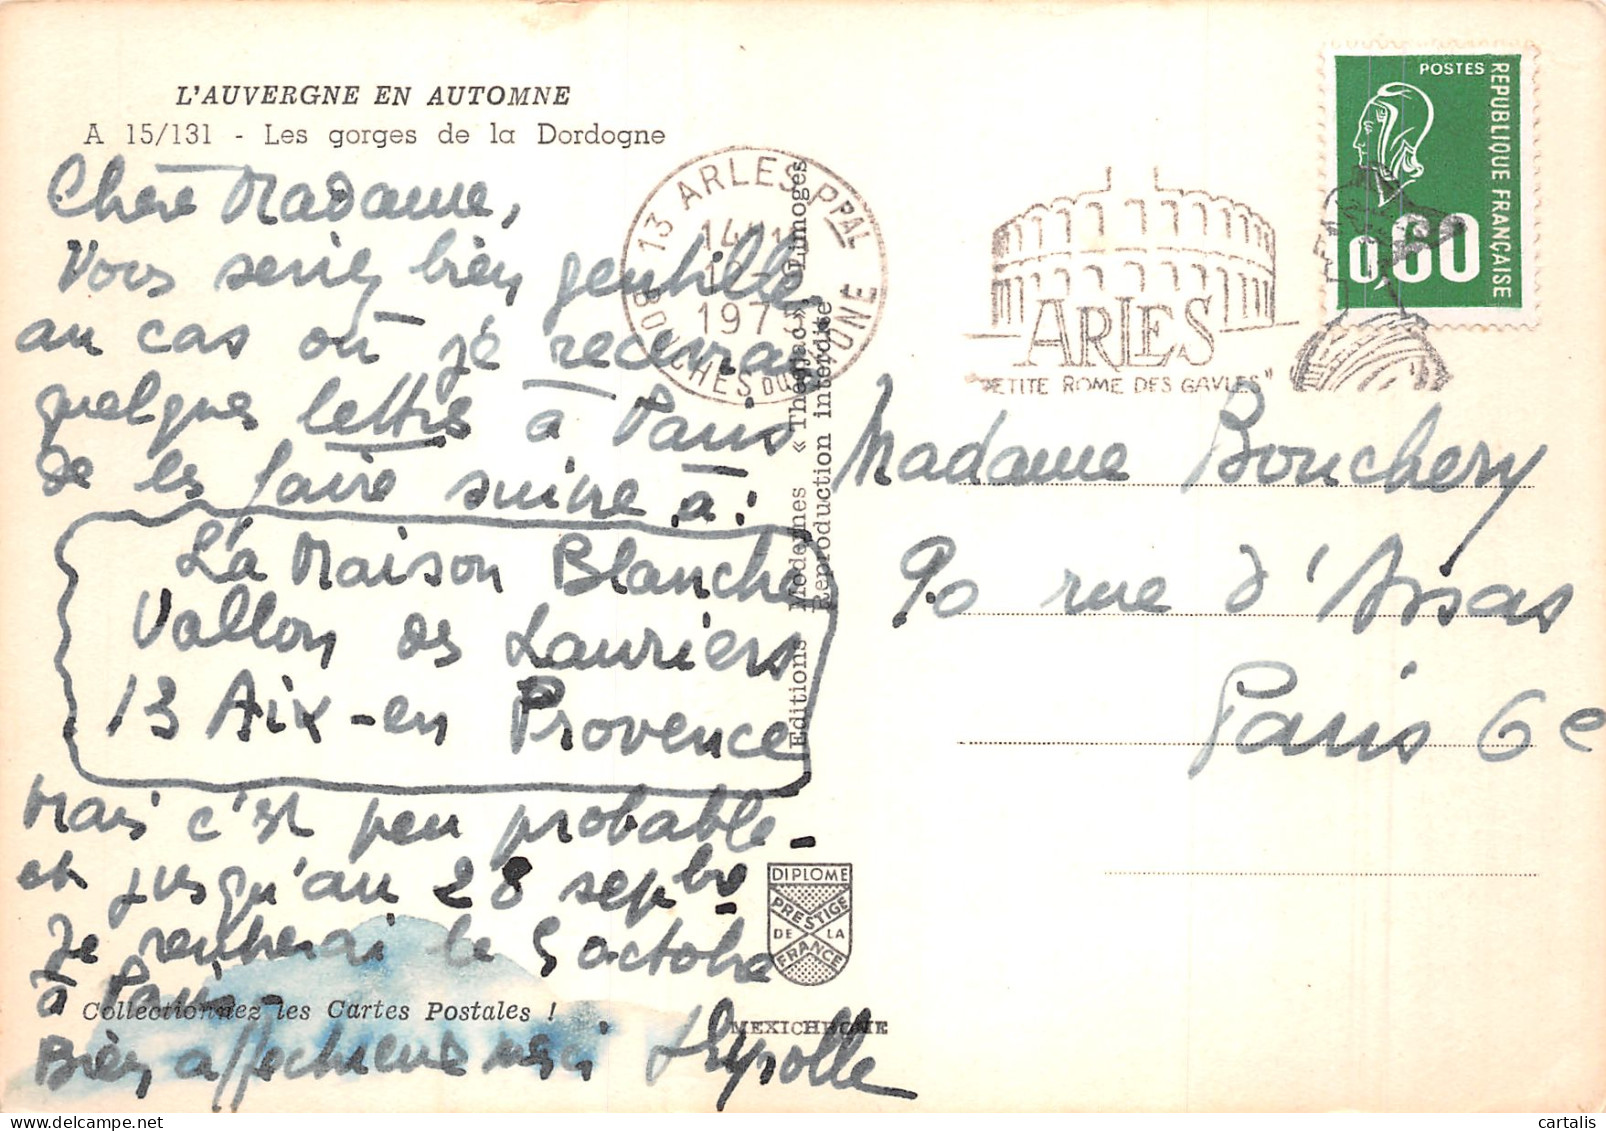 L'AUVERGNE EN AUTOMNE
A 15/131 - Les gorges de la Dordogne
Chère Madame,
Vous seriez bien gentille,
au cas où je recevrais
quelques lettres à Paris
de les faire suivre à :
La Maison Blanche
Vallon des Lauriers
13 Aix-en Provence
Mais c'est peu probable -
et jusqu'au 28 septbre
Je rentrerai le 5 octobre
à Paris -
Bien affectueusement
Collectionnez les Cartes Postales !
Editions Modernes « Théojac » Limoges
Reproduction interdite
DIPLOME
PRESTIGE
DE LA
FRANCE
MEXICHROME
13 ARLES PPAL
1975
BOUCHES DU RHONE
ARLES
"PETITE ROME DES GAULES"
POSTES
REPUBLIQUE FRANÇAISE
0,60
Madame Bouchery
90 rue d'Assas
Paris 6e
cartalis